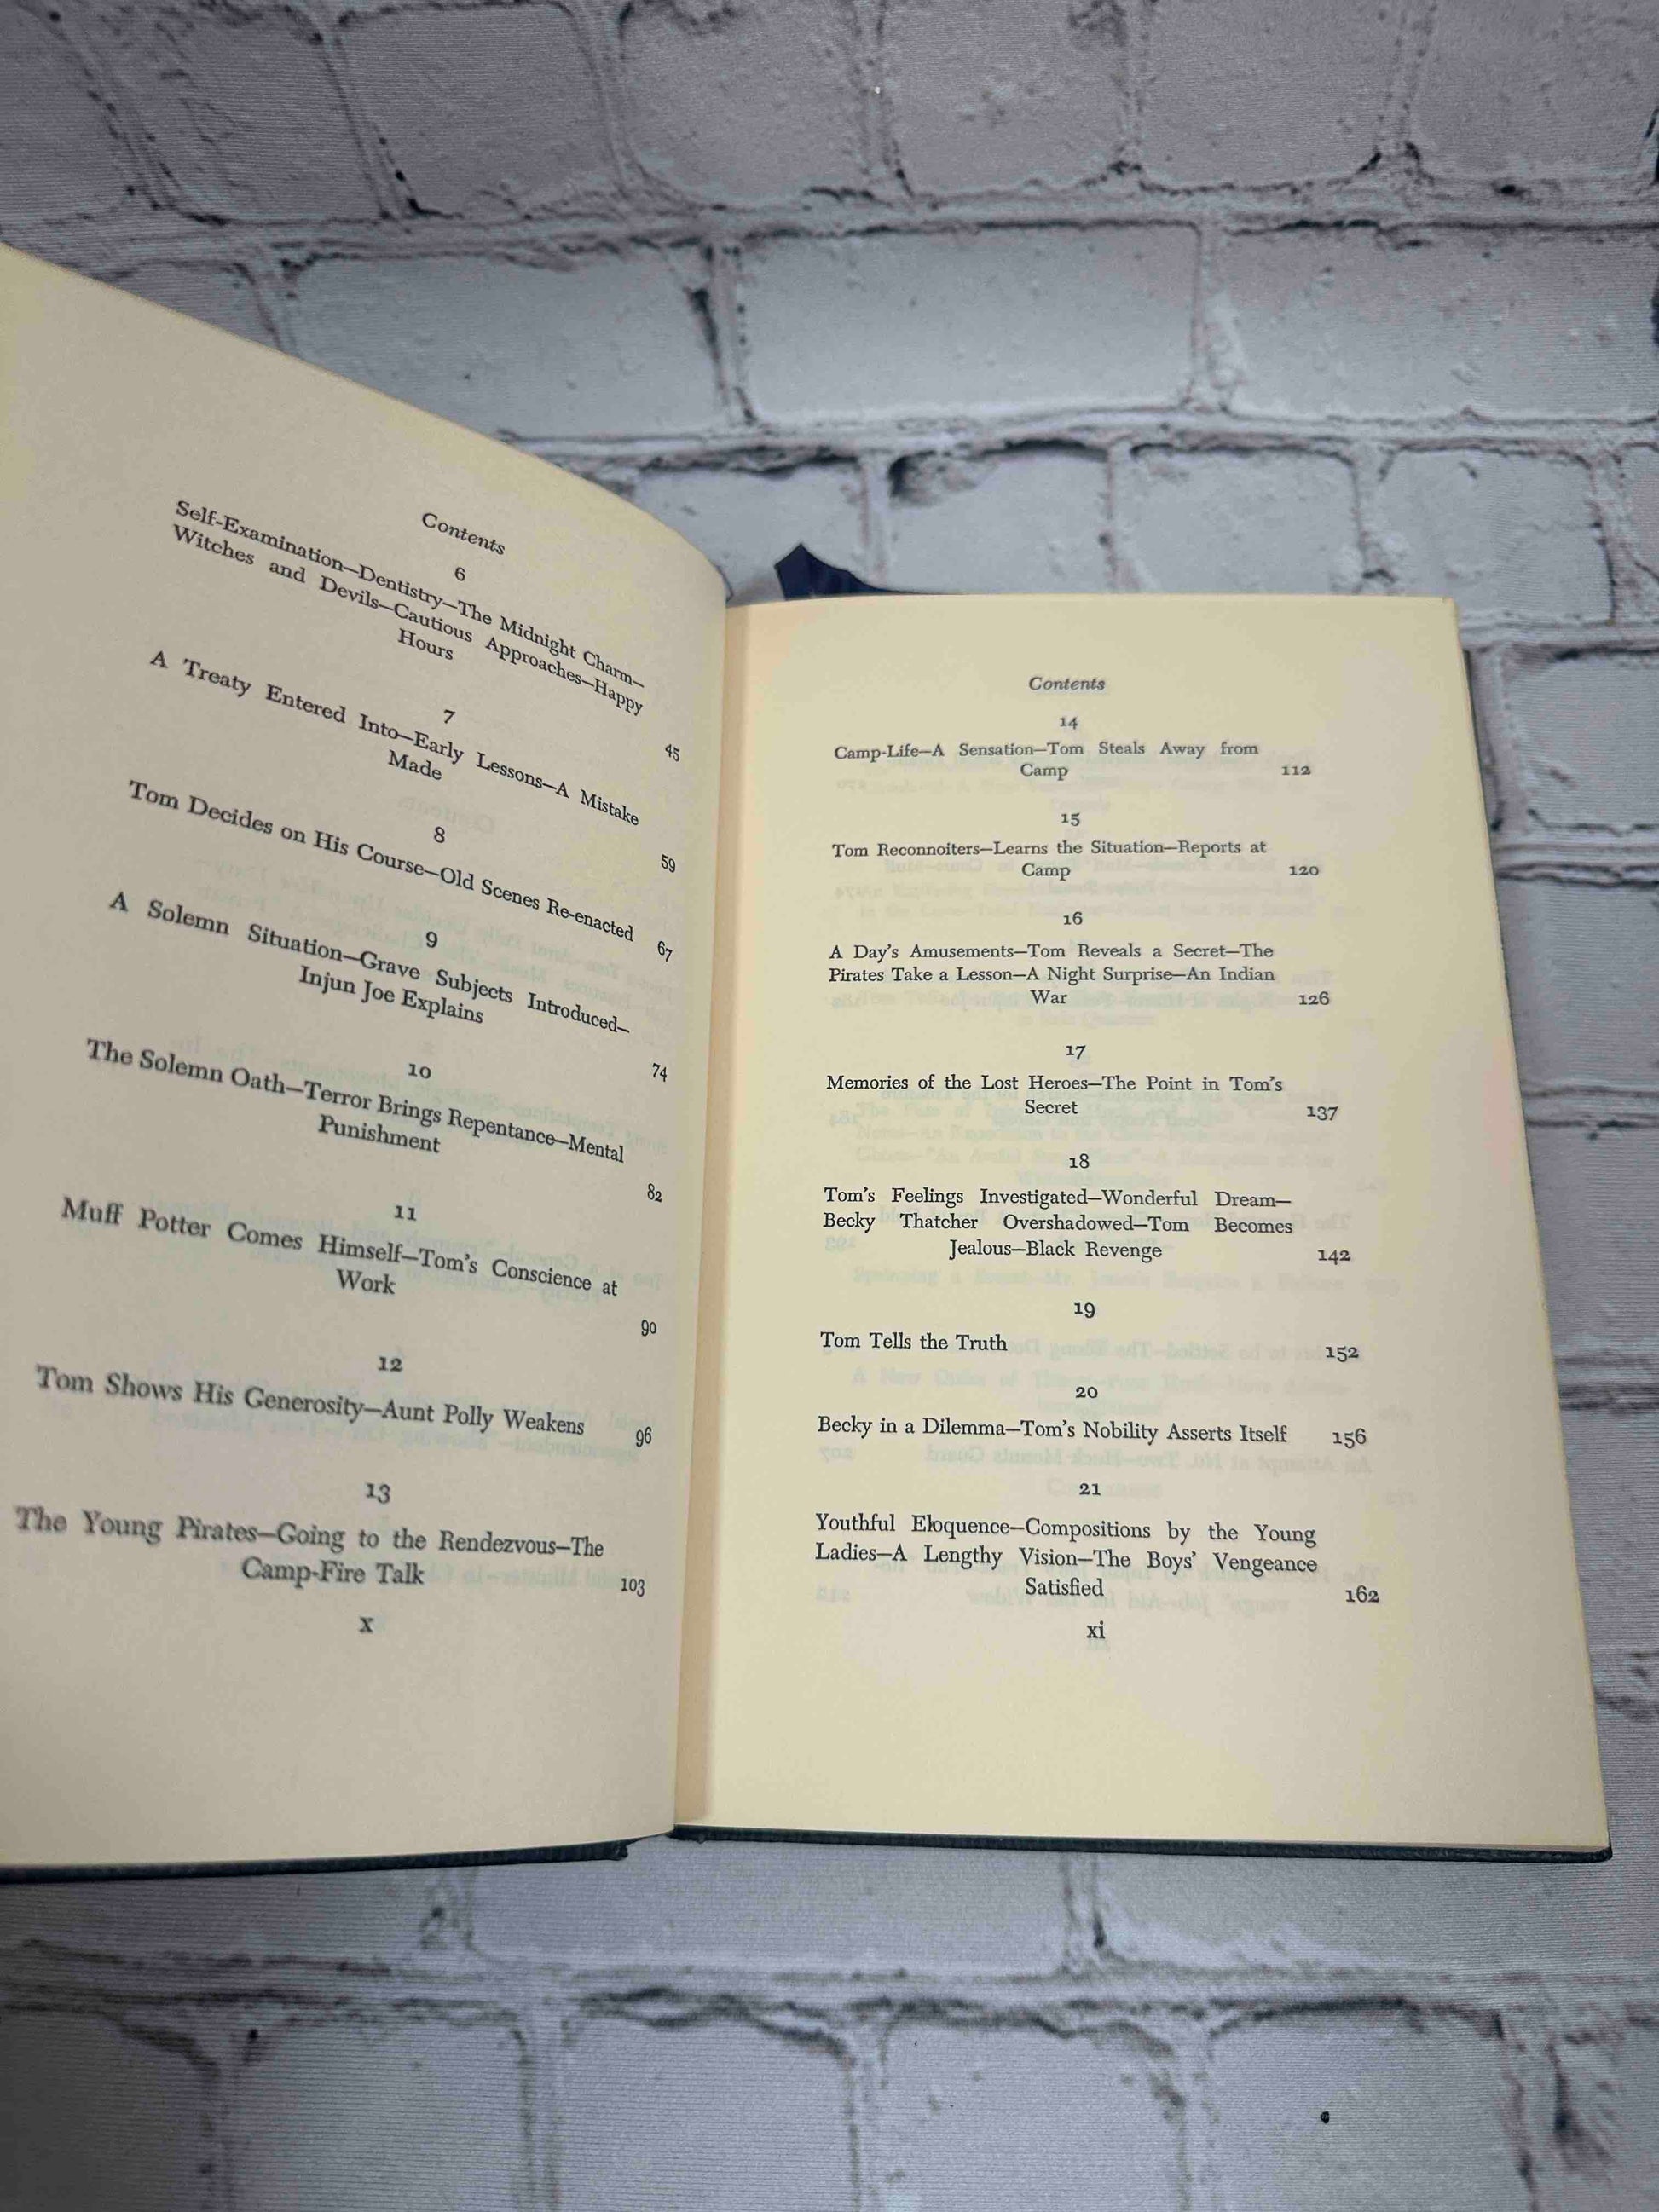 Contents
6
Self-Examination—Dentistry—The Midnight Charm—
Witches and Devils—Cautious Approaches—Happy
Hours 45
7
A Treaty Entered Into—Early Lessons—A Mistake
Made 59
8
Tom Decides on His Course—Old Scenes Re-enacted 67
9
A Solemn Situation—Grave Subjects Introduced—
Injun Joe Explains 74
10
The Solemn Oath—Terror Brings Repentance—Mental
Punishment 82
11
Muff Potter Comes Himself—Tom's Conscience at
Work 90
12
Tom Shows His Generosity—Aunt Polly Weakens 96
13
The Young Pirates—Going to the Rendezvous—The
Camp-Fire Talk 103
x
Contents
14
Camp-Life—A Sensation—Tom Steals Away from
Camp 112
15
Tom Reconnoiters—Learns the Situation—Reports at
Camp 120
16
A Day's Amusements—Tom Reveals a Secret—The
Pirates Take a Lesson—A Night Surprise—An Indian
War 126
17
Memories of the Lost Heroes—The Point in Tom's
Secret 137
18
Tom's Feelings Investigated—Wonderful Dream—
Becky Thatcher Overshadowed—Tom Becomes
Jealous—Black Revenge 142
19
Tom Tells the Truth 152
20
Becky in a Dilemma—Tom's Nobility Asserts Itself 156
21
Youthful Eloquence—Compositions by the Young
Ladies—A Lengthy Vision—The Boys' Vengeance
Satisfied 162
xi